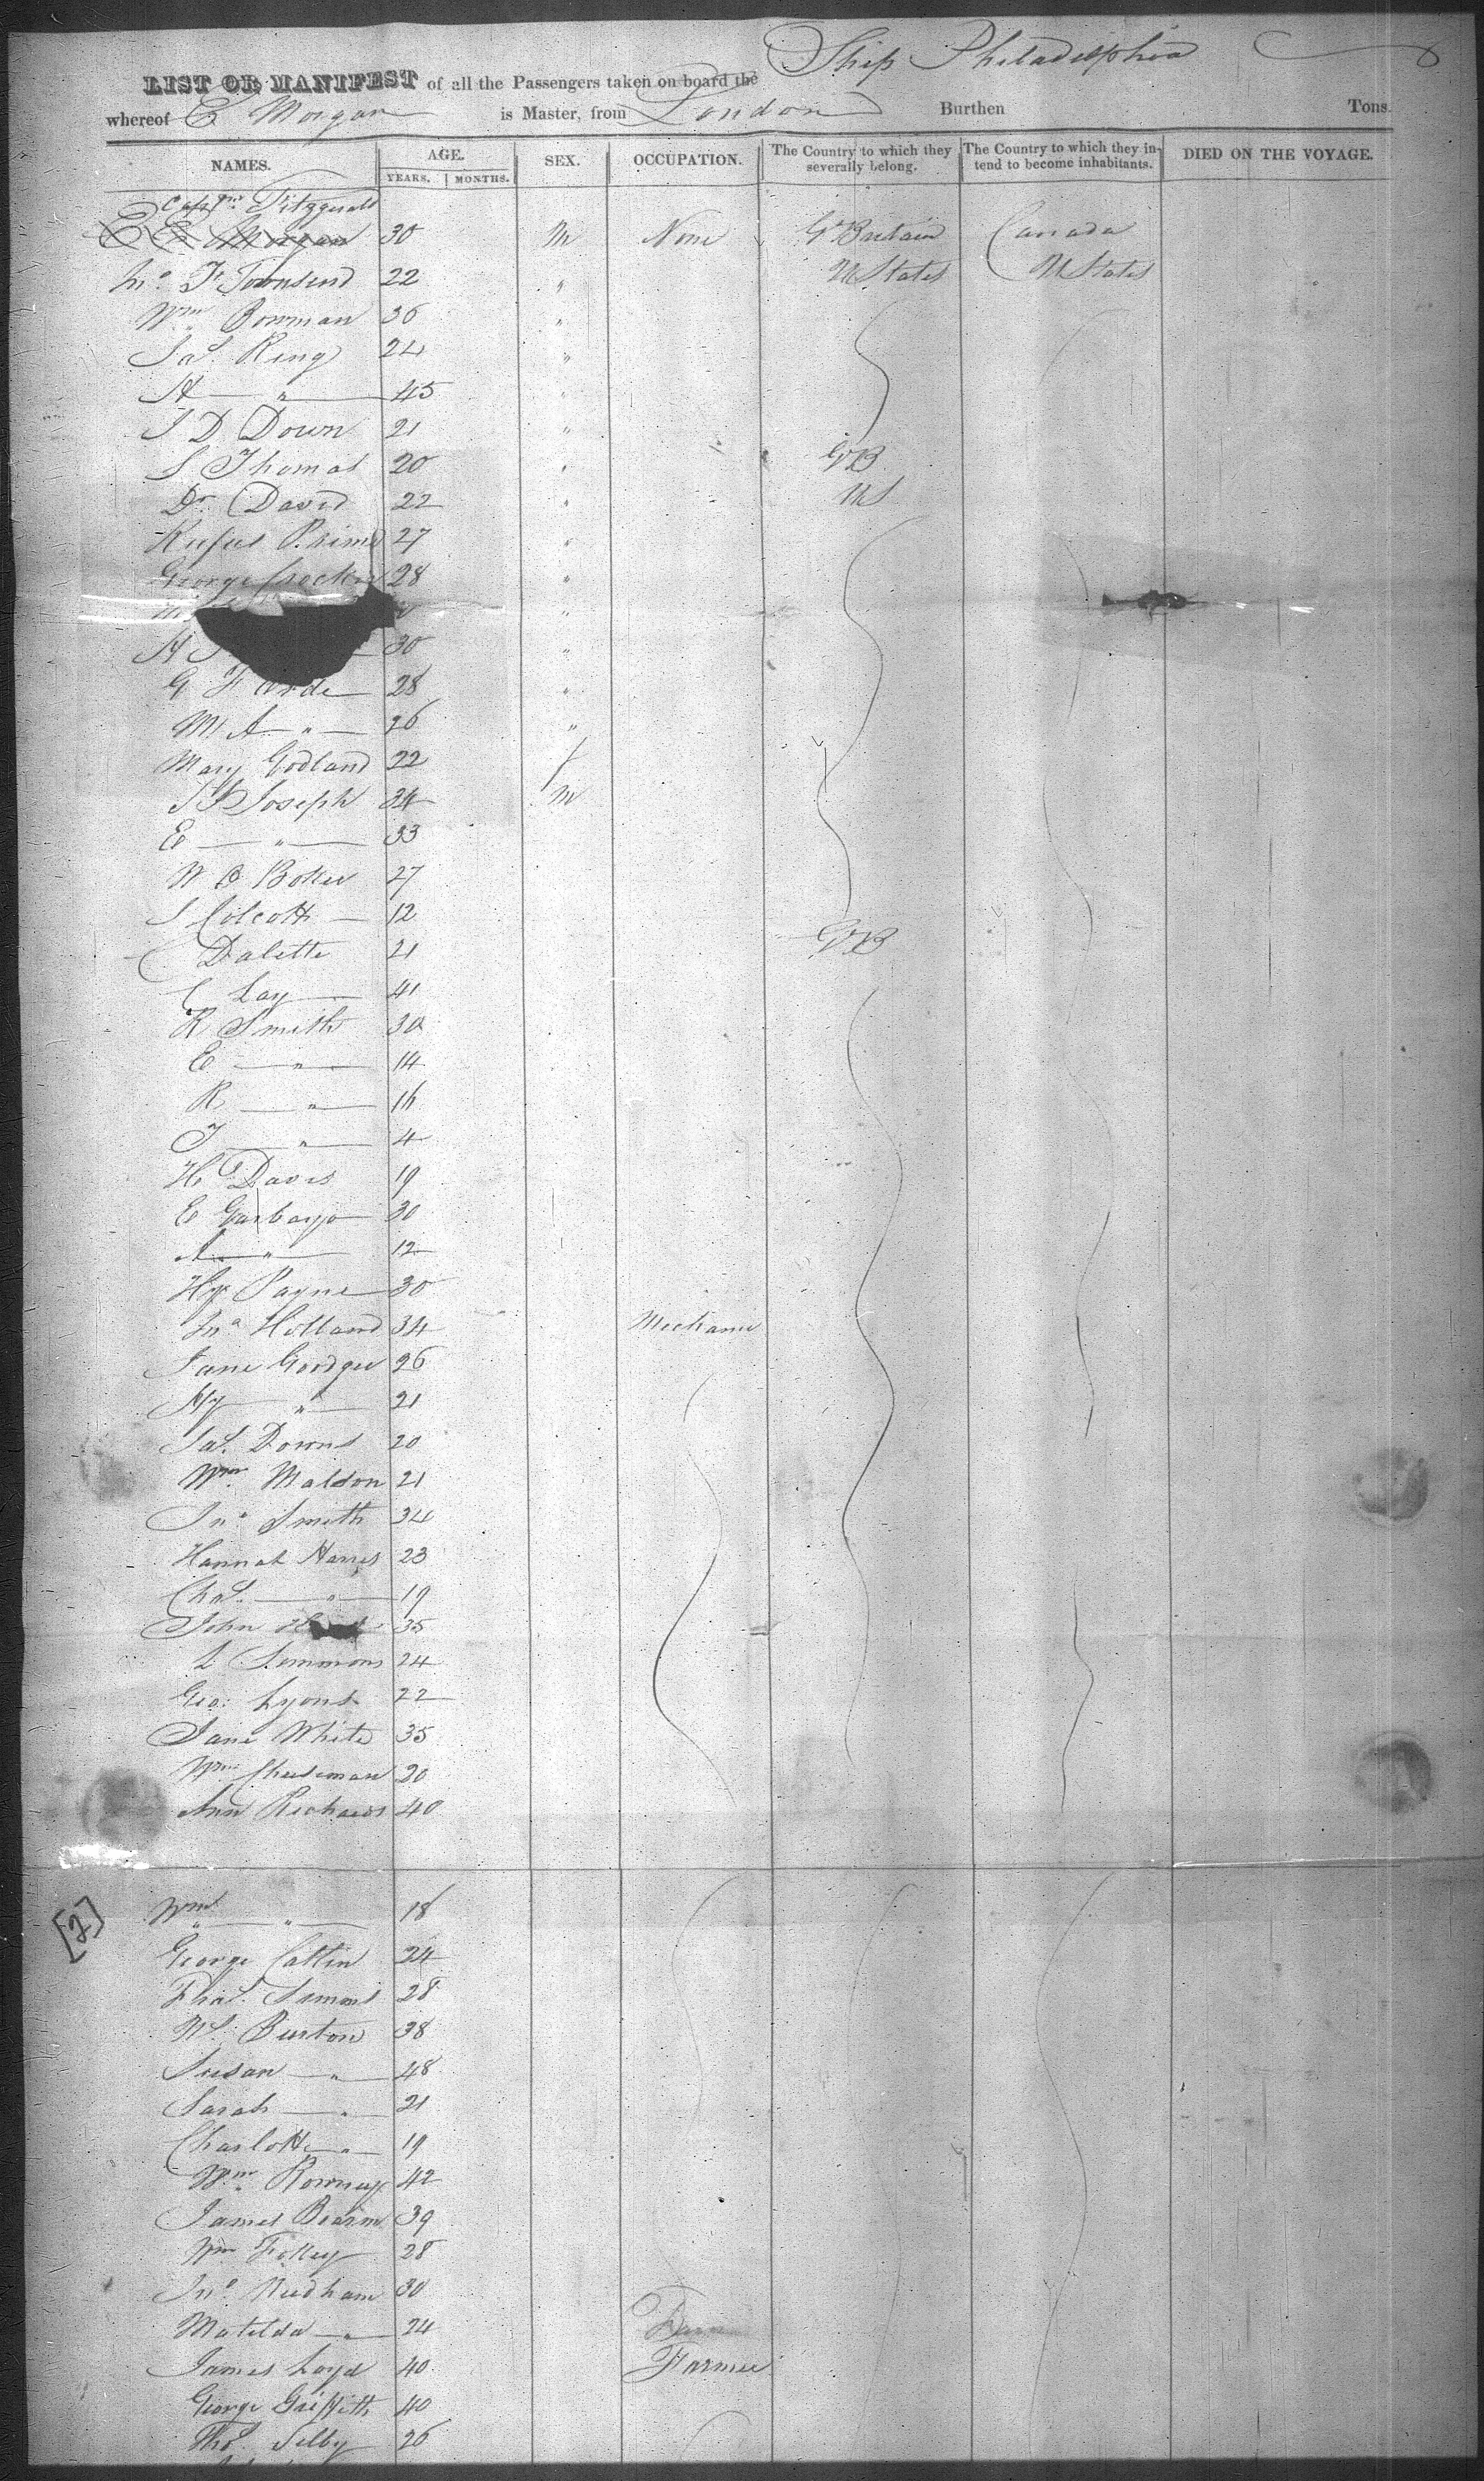 Ship Philadelphia
LIST OR MANIFEST of all the Passengers taken on board the
whereof E Morgan is Master, from London Burthen Tons.
NAMES. AGE. SEX. OCCUPATION. The Country to which they severally belong. The Country to which they intend to become inhabitants. DIED ON THE VOYAGE.
YEARS. MONTHS.
Captn Fitzgerald
E E Morgan 30 M None Gt Britain Canada
Jno. F. Townsend 22 " U States U States
Wm Bowman 36 "
Jas. King 24 "
A " 45 "
J D Down 21 "
S Thomas 20 " GtB
Dr. David 22 " US
Rufus Prime 27 "
George Crocker 28 "
30 "
G F 28 "
M A " 26 "
Mary Godland 22 f
J Joseph 34 m
E " 33
W B Boker 27
S Colcott 12
C Dalette 21 GtB
C Lay 41
R Smith 30
E " 14
R " 16
T " 4
H Davis 19
E Garbayo 30
A " 12
Hy Payne 30
Jno Holland 34 Mechanic
Jane Goodger 26
Hy " 21
Jas. Downs 20
Wm. Maldon 21
Jno. Smith 34
Hannah Harris 23
Chas. " 19
John 35
L Simmons 24
Geo: Lyons 22
Jane White 35
Wm Cheesman 20
Ann Richards 40
[2]
Wm " 18
George Cattin 24
Thos. Simons 28
Ms. Burton 38
Susan " 48
Sarah " 21
Charlotte " 19
Wm. Rowney 42
James Bearm 39
Wm Folley 28
Jno. Needham 30
Matilda " 24
James Loyd 40 Farmer
George Griffith 40
Thos. Selby 26